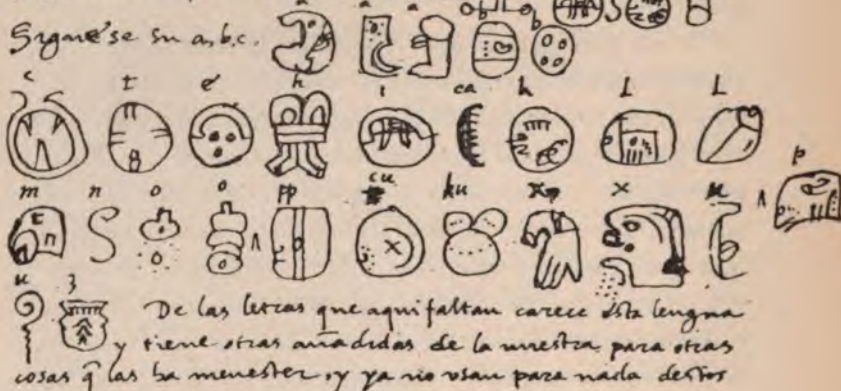 Siguese su a, b, c. a a a b b
c t e h i ca k l l
m n o o pp cu ku x x u p
u z De las letras que aqui faltan carece esta lengua
y tiene otras añadidas de la nuestra para otras
cosas q̃ las ha menester, y ya no usan para nada destos